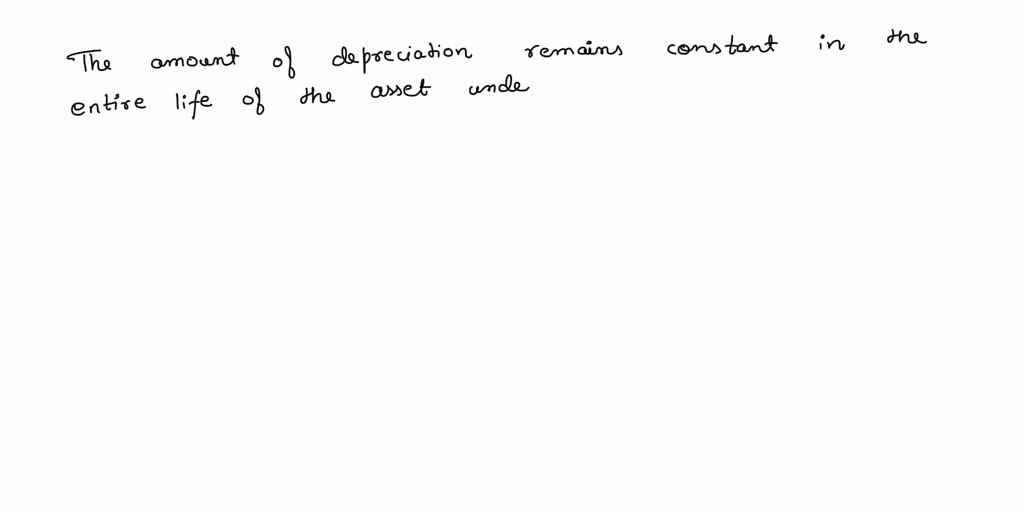 The amount of depreciation remains constant in the
entire life of the asset unde